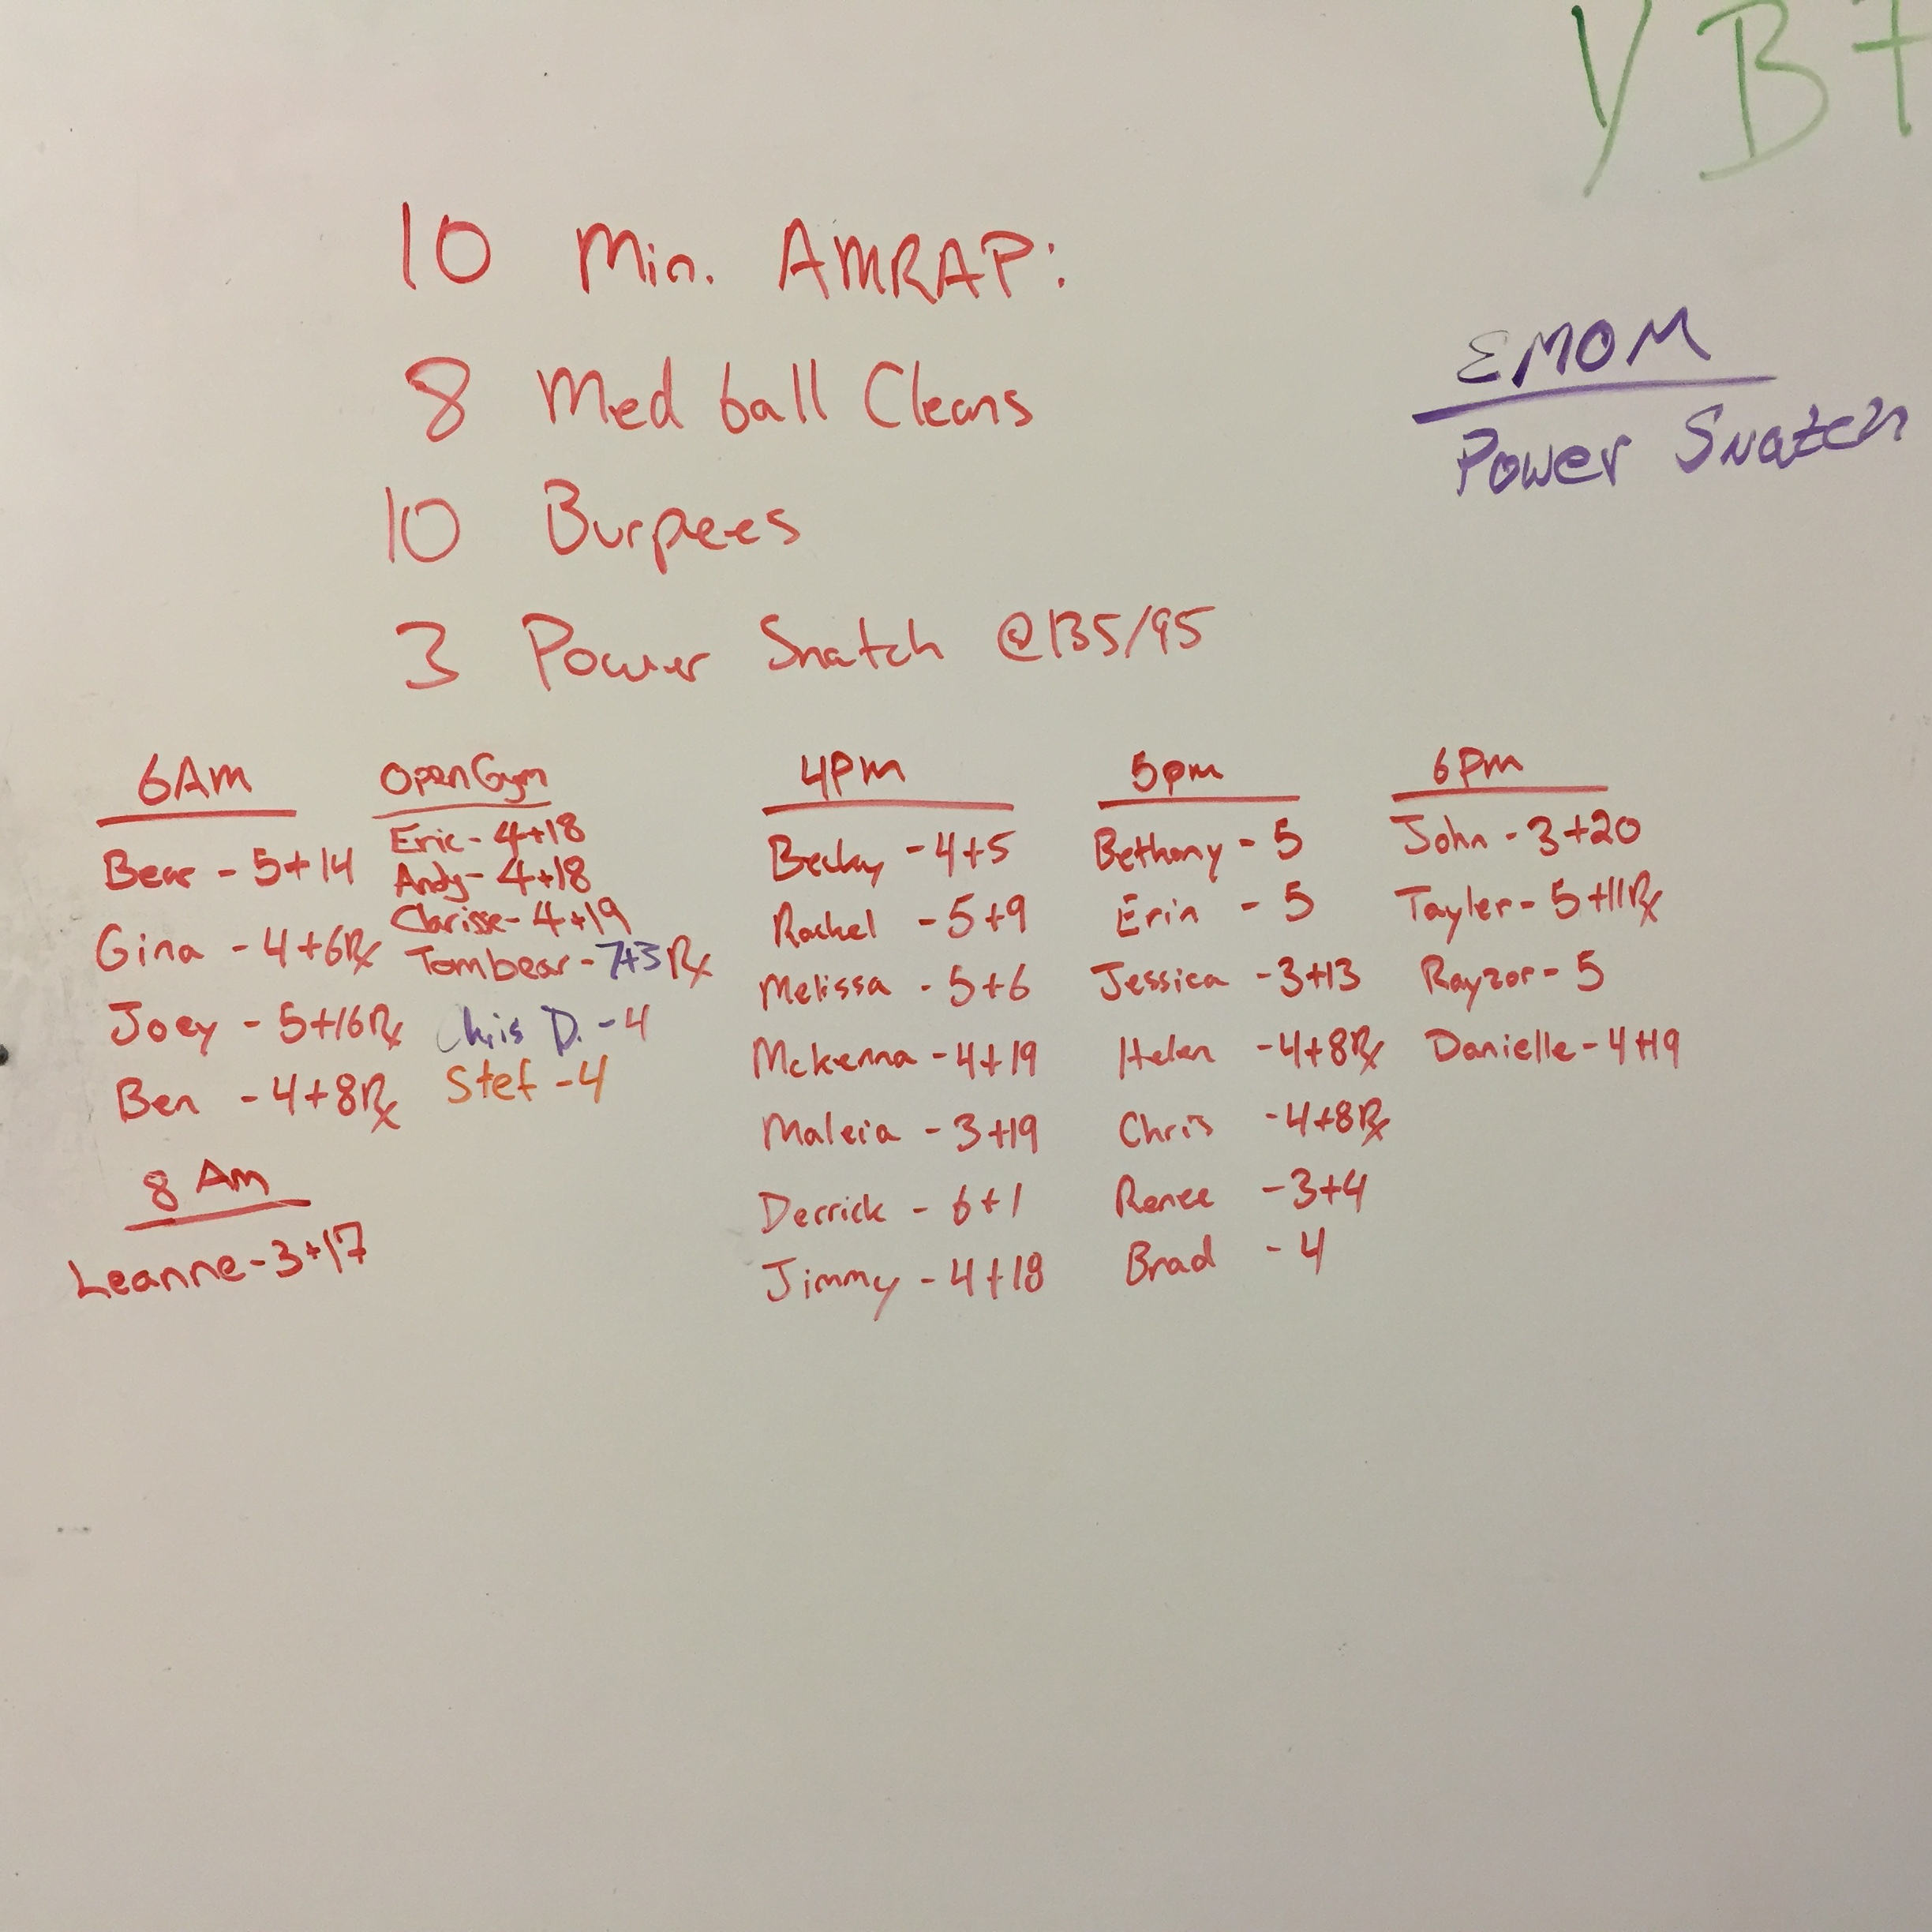 YB7
10 Min. AMRAP:
8 Med ball Cleans
10 Burpees
3 Power Snatch @135/95
EMOM
Power Snatch
6Am
Bear - 5+14
Gina - 4+6Rx
Joey - 5+16Rx
Ben - 4+8Rx
8 Am
Leanne-3+17
Open Gym
Eric-4+18
Andy-4+18
Clarisse-4+19
Tombear-7+3Rx
Chris D.-4
Stef-4
4pm
Becky -4+5
Rachel -5+9
Melissa -5+6
Mckenna-4+19
Maleia -3+19
Derrick - 6+1
Jimmy -4+18
5pm
Bethany - 5
Erin - 5
Jessica -3+13
Helen -4+8Rx
Chris -4+8Rx
Renee -3+4
Brad -4
6pm
John -3+20
Tayler- 5+11Rx
Rayzor- 5
Danielle-4+19